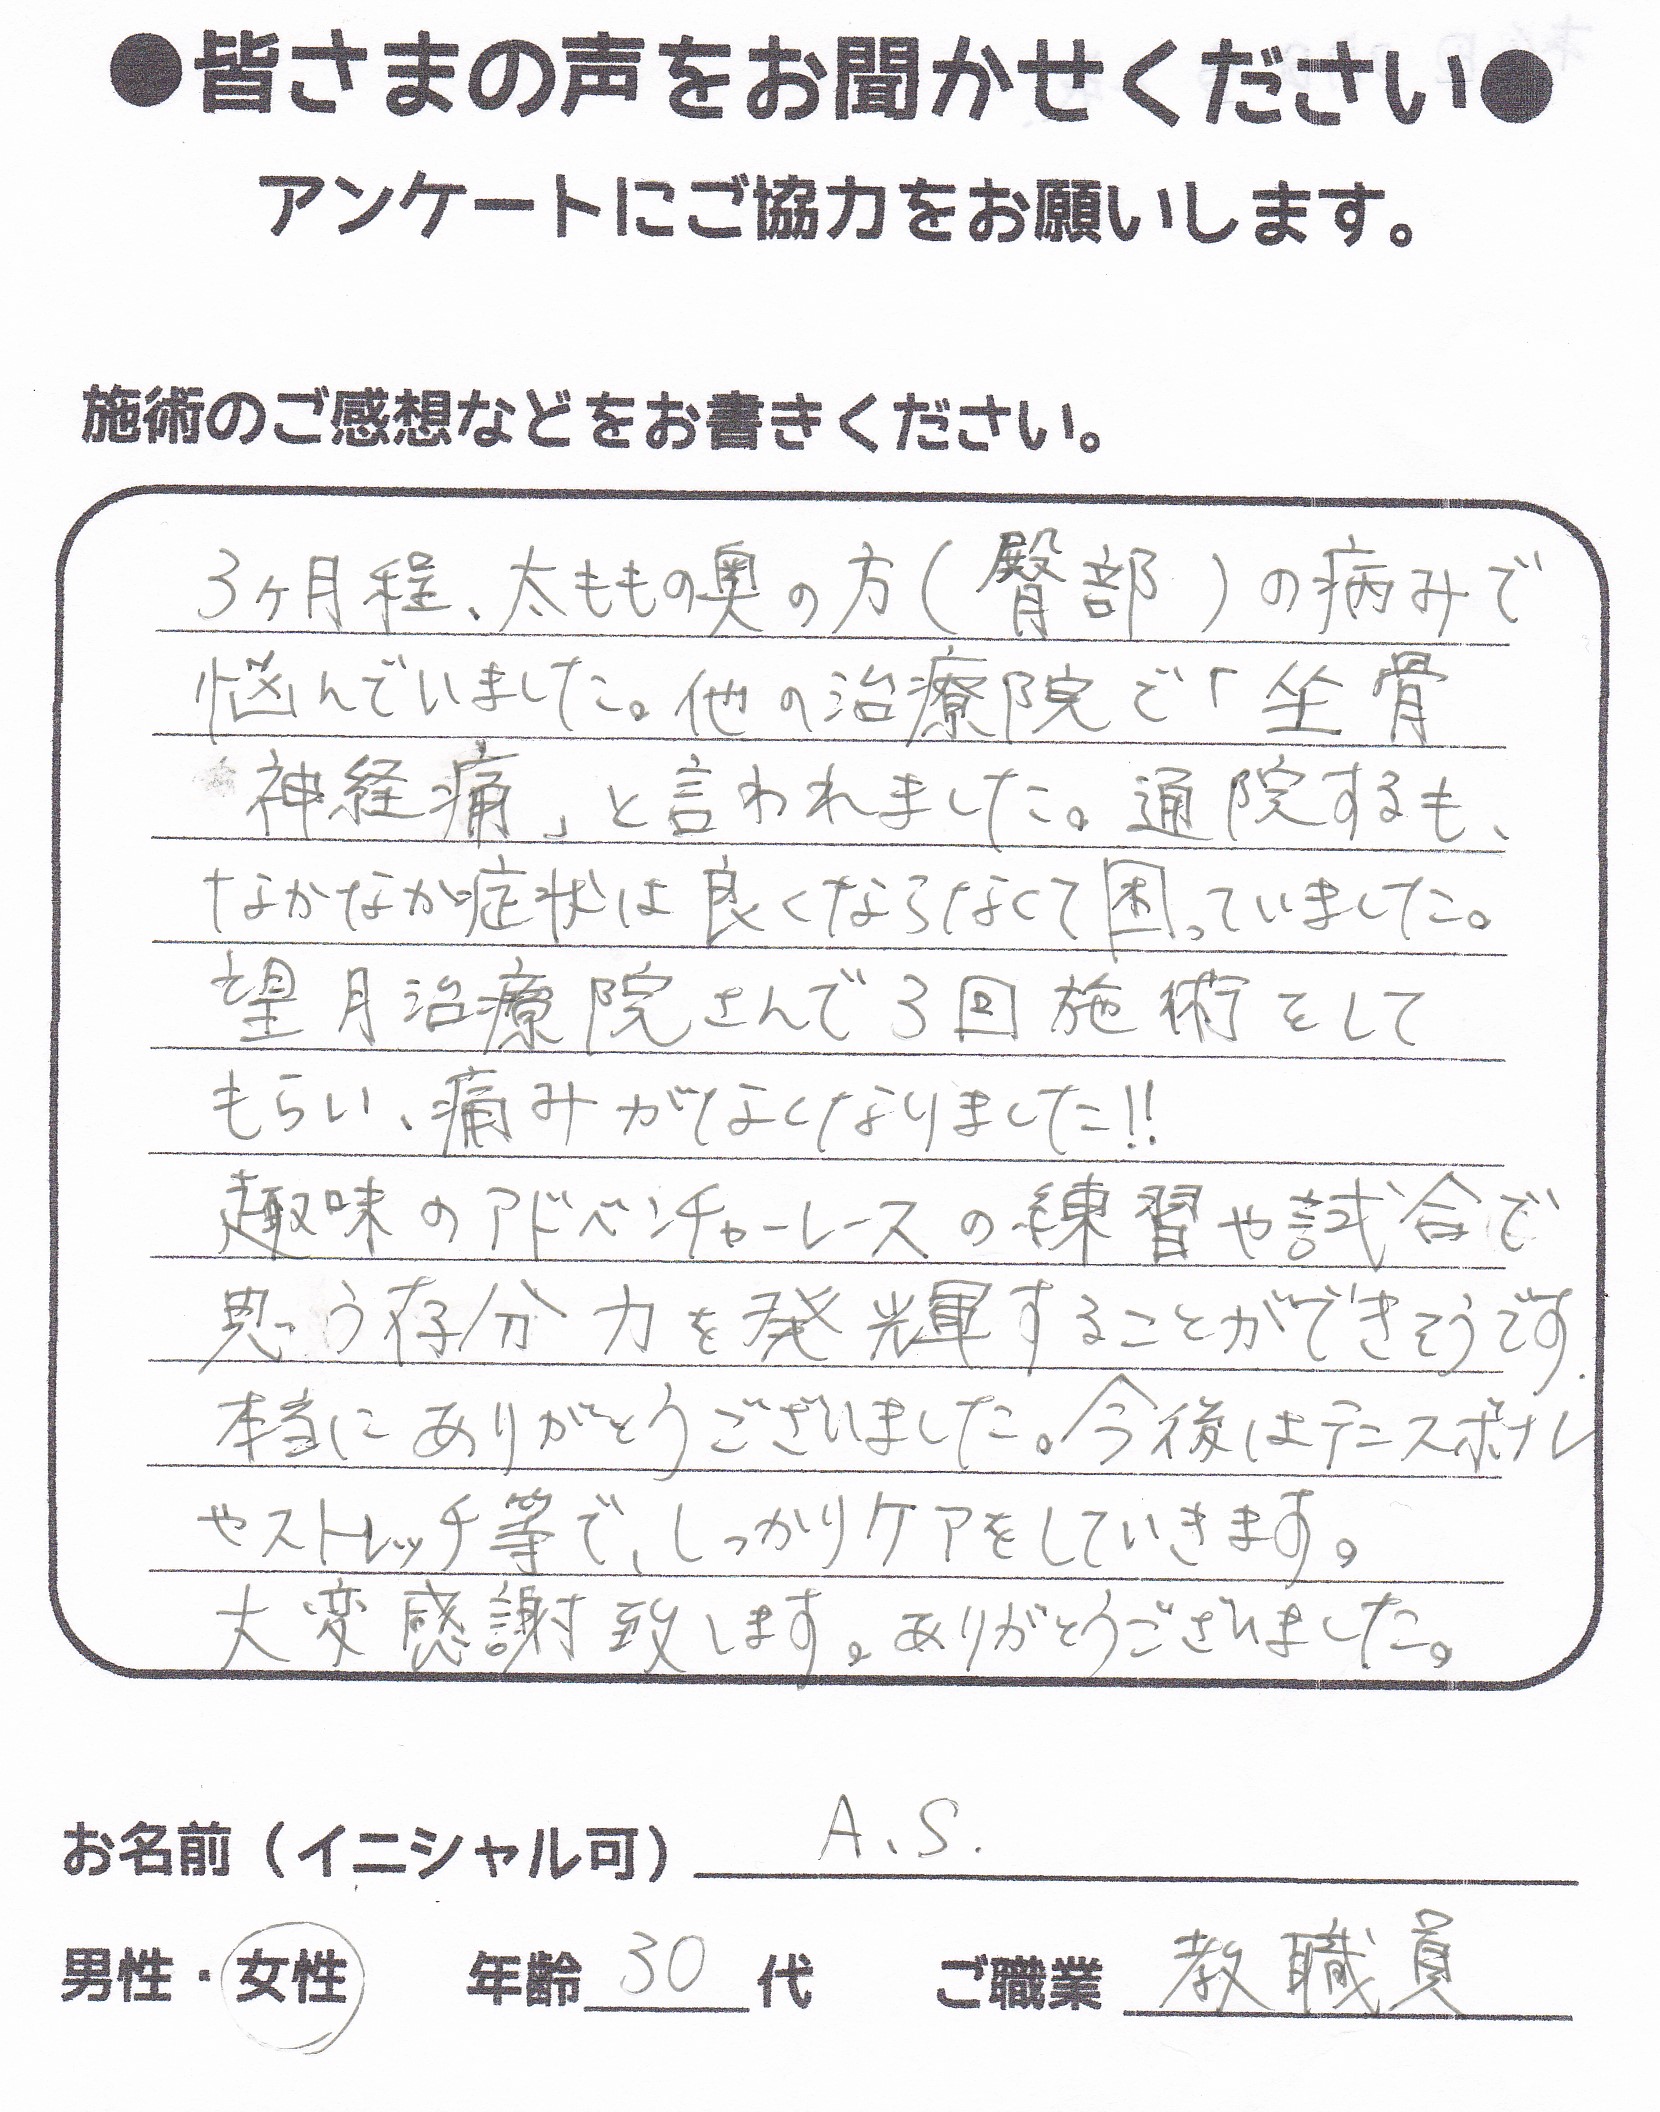 ●皆さまの声をお聞かせください●
アンケートにご協力をお願いします。
施術のご感想などをお書きください。
3ヶ月程、太ももの奥の方(臀部)の病みで
悩んでいました。他の治療院で「坐骨
神経痛」と言われました。通院するも、
なかなか症状は良くならなくて困っていました。
望月治療院さんで3回施術をして
もらい、痛みがなくなりました!!
趣味のアドベンチャーレースの練習や試合で
思う存分力を発輝することができそうです.
本当にありがとうございました。今後はテニスボール
やストレッチ等で、しっかりケアをしていきます。
大変感謝致します。ありがとうございました。
お名前(イニシャル可) A.S.
男性・女性 年齢 30 代 ご職業 教職員